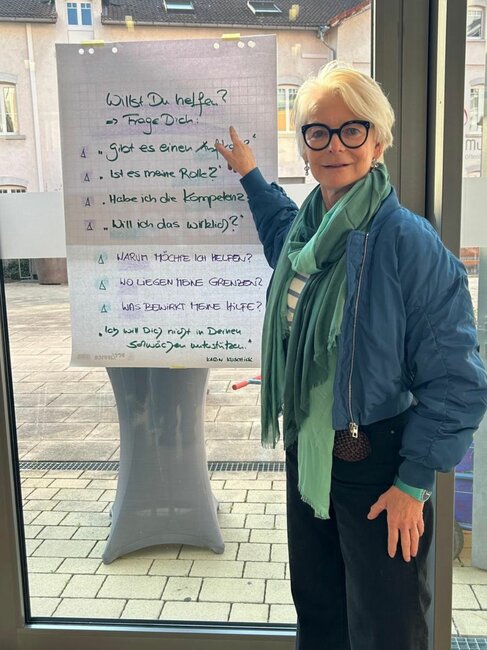 Willst Du helfen?
=> Frage Dich:
"gibt es einen
"Ist es meine Rolle?"
"Habe ich die Kompetenz?
"Will ich das wirklich?"
WARUM MÖCHTE ICH HELFEN?
WO LIEGEN MEINE GRENZEN?
WAS BEWIRKT MEINE HILFE?
"Ich will Dich nicht in Deinen
Schwächen unterstützen."
KARIN
Mu